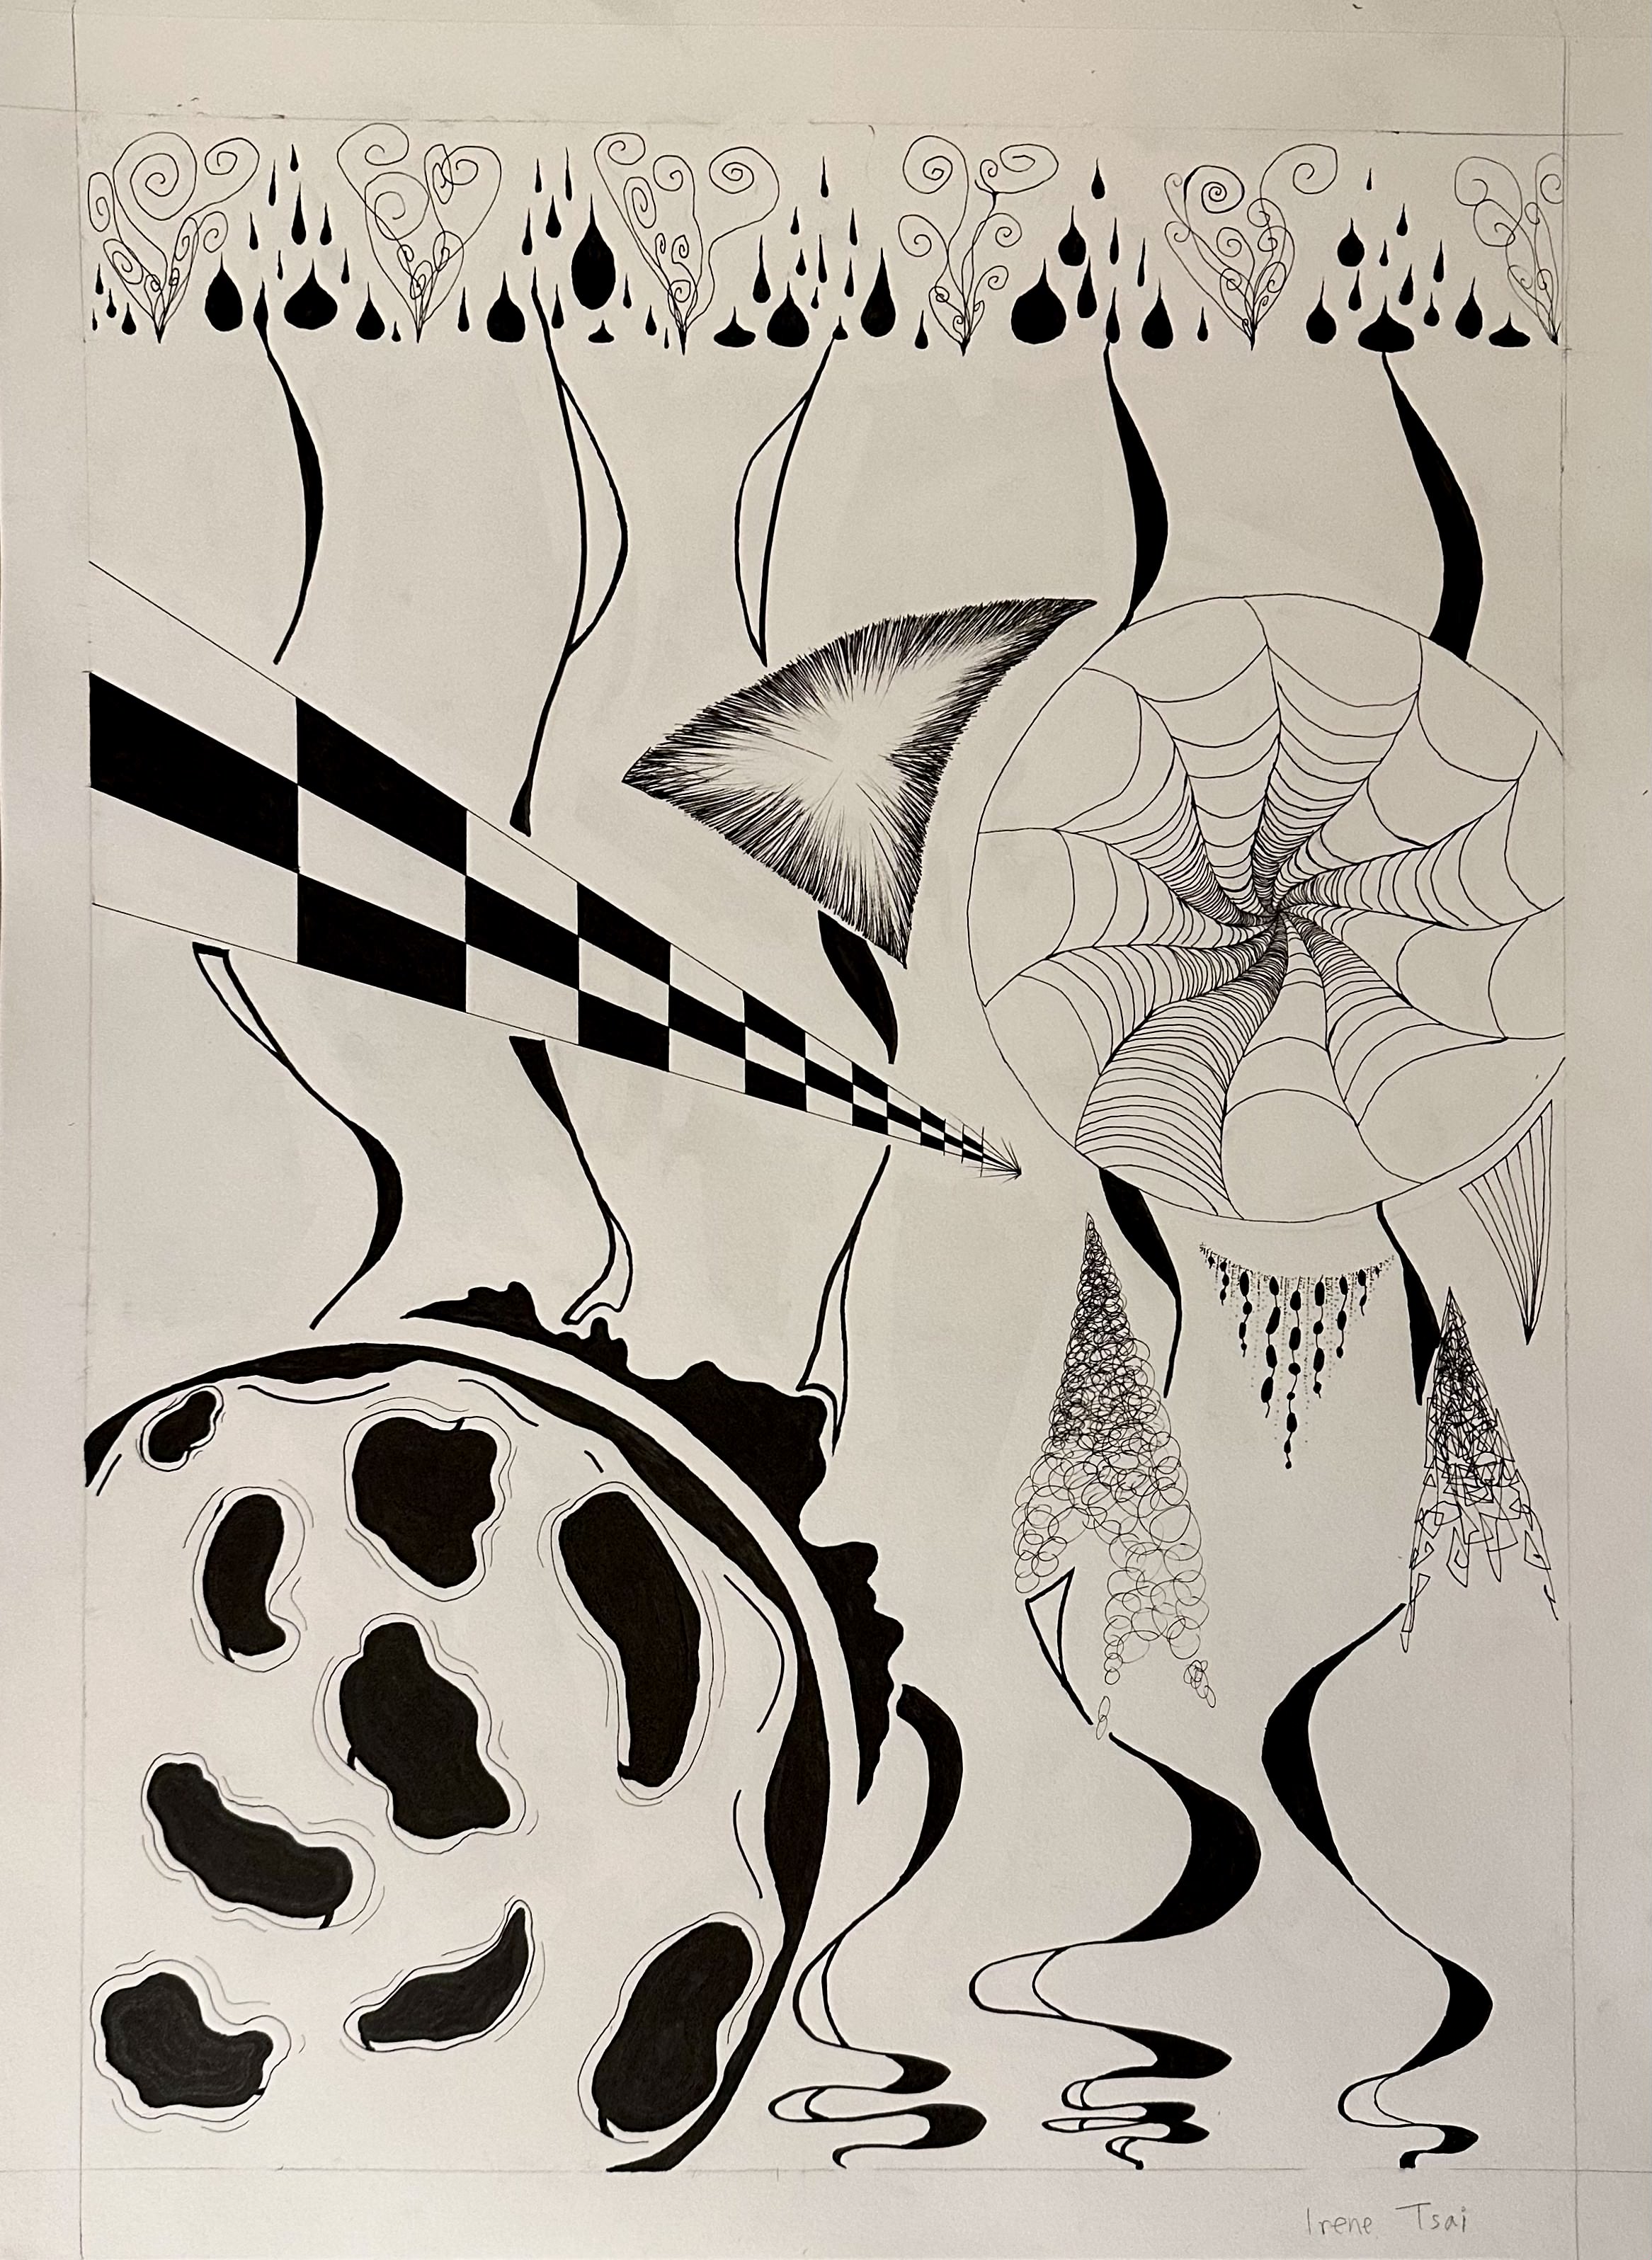 Irene Tsai